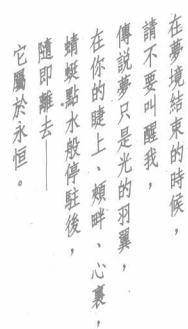 在夢境結束的時候，
請不要叫醒我，
傳說夢只是光的羽翼，
在你的睫上、頰畔、心裏，
蜻蜓點水般停駐後，
隨即離去——
它屬於永恒。